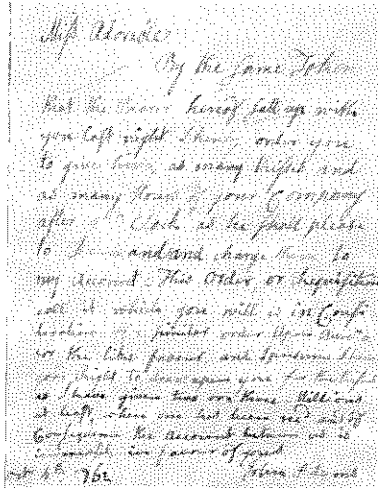 Miss Adorable
By the same Token
that the Bearer hereof satt up with
you last night I hereby order you
to give him, as many Kisses and
as many Hours of your Company
after O Clock as he shall please
to demand and charge them to
my Account. This Order or Requisition
call it which you will is in Consi
deration of a similar order Upon
for the like favour and I presume I have
good Right to draw upon you for the Kisses
as I have given two or three Millions
at least, when one has been recd and of
Consequence the Account between us is
immensely in favour of yours
4th 1762 John Adams